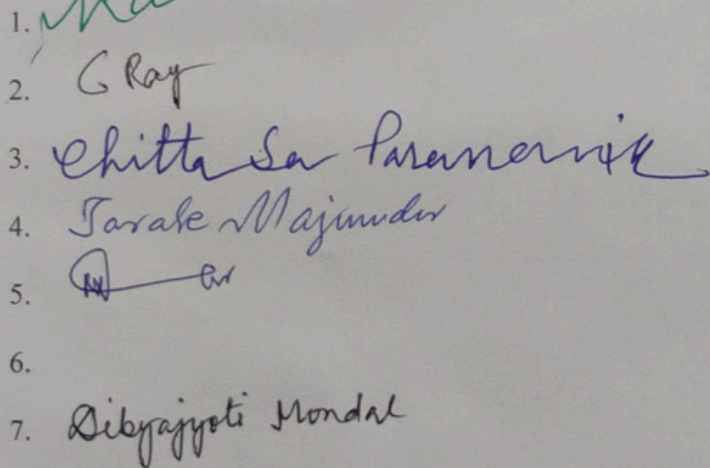 1.
2. G Ray
3. Chitta Sa Paramanik
4. Tarak Majumder
5.
6.
7. Dibyajyoti Mondal